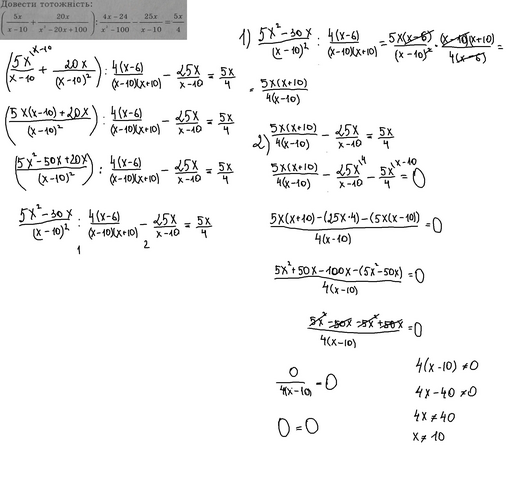 Довести тотожність:
(5x/(x-10) + 20x/(x²-20x+100)) : (4x-24)/(x²-100) - 25x/(x-10) = 5x/4
(5x^(x-10)/(x-10) + 20x/(x-10)²) : 4(x-6)/((x-10)(x+10)) - 25x/(x-10) = 5x/4
(5x(x-10)+20x)/(x-10)² : 4(x-6)/((x-10)(x+10)) - 25x/(x-10) = 5x/4
(5x²-50x+20x)/(x-10)² : 4(x-6)/((x-10)(x+10)) - 25x/(x-10) = 5x/4
(5x²-30x)/(x-10)² : 4(x-6)/((x-10)(x+10)) - 25x/(x-10) = 5x/4
1 2
1) (5x²-30x)/(x-10)² : 4(x-6)/((x-10)(x+10)) = 5x(x-6)/(x-10)² · (x-10)(x+10)/4(x-6) =
= 5x(x+10)/4(x-10)
2) 5x(x+10)/4(x-10) - 25x/(x-10) = 5x/4
5x(x+10)/4(x-10) - 25x^4/(x-10) - 5x^(x-10)/4 = 0
(5x(x+10)-(25x·4)-(5x(x-10))/4(x-10) = 0
(5x²+50x-100x-(5x²-50x)/4(x-10) = 0
(5x²-50x-5x²+50x)/4(x-10) = 0
0/4(x-10) = 0
0 = 0
4(x-10) ≠ 0
4x-40 ≠ 0
4x ≠ 40
x ≠ 10